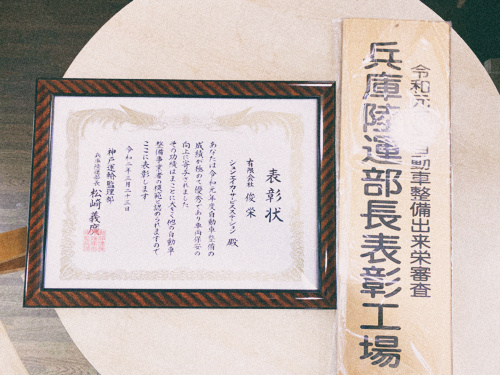 表彰状
有限会社 俊栄
殿
あなたは令和元年度自動車整備の
成績が極めて優秀であり車両保安の
向上に寄与されました
その功績はまことに大きく他の自動車
整備事業者の模範と認められますので
ここに表彰します
令和二年三月二十三日
神戸運輸監理部
兵庫陸運部長 松﨑義廣
令和元
自動車整備出来栄審査
兵庫陸運部長表彰工場